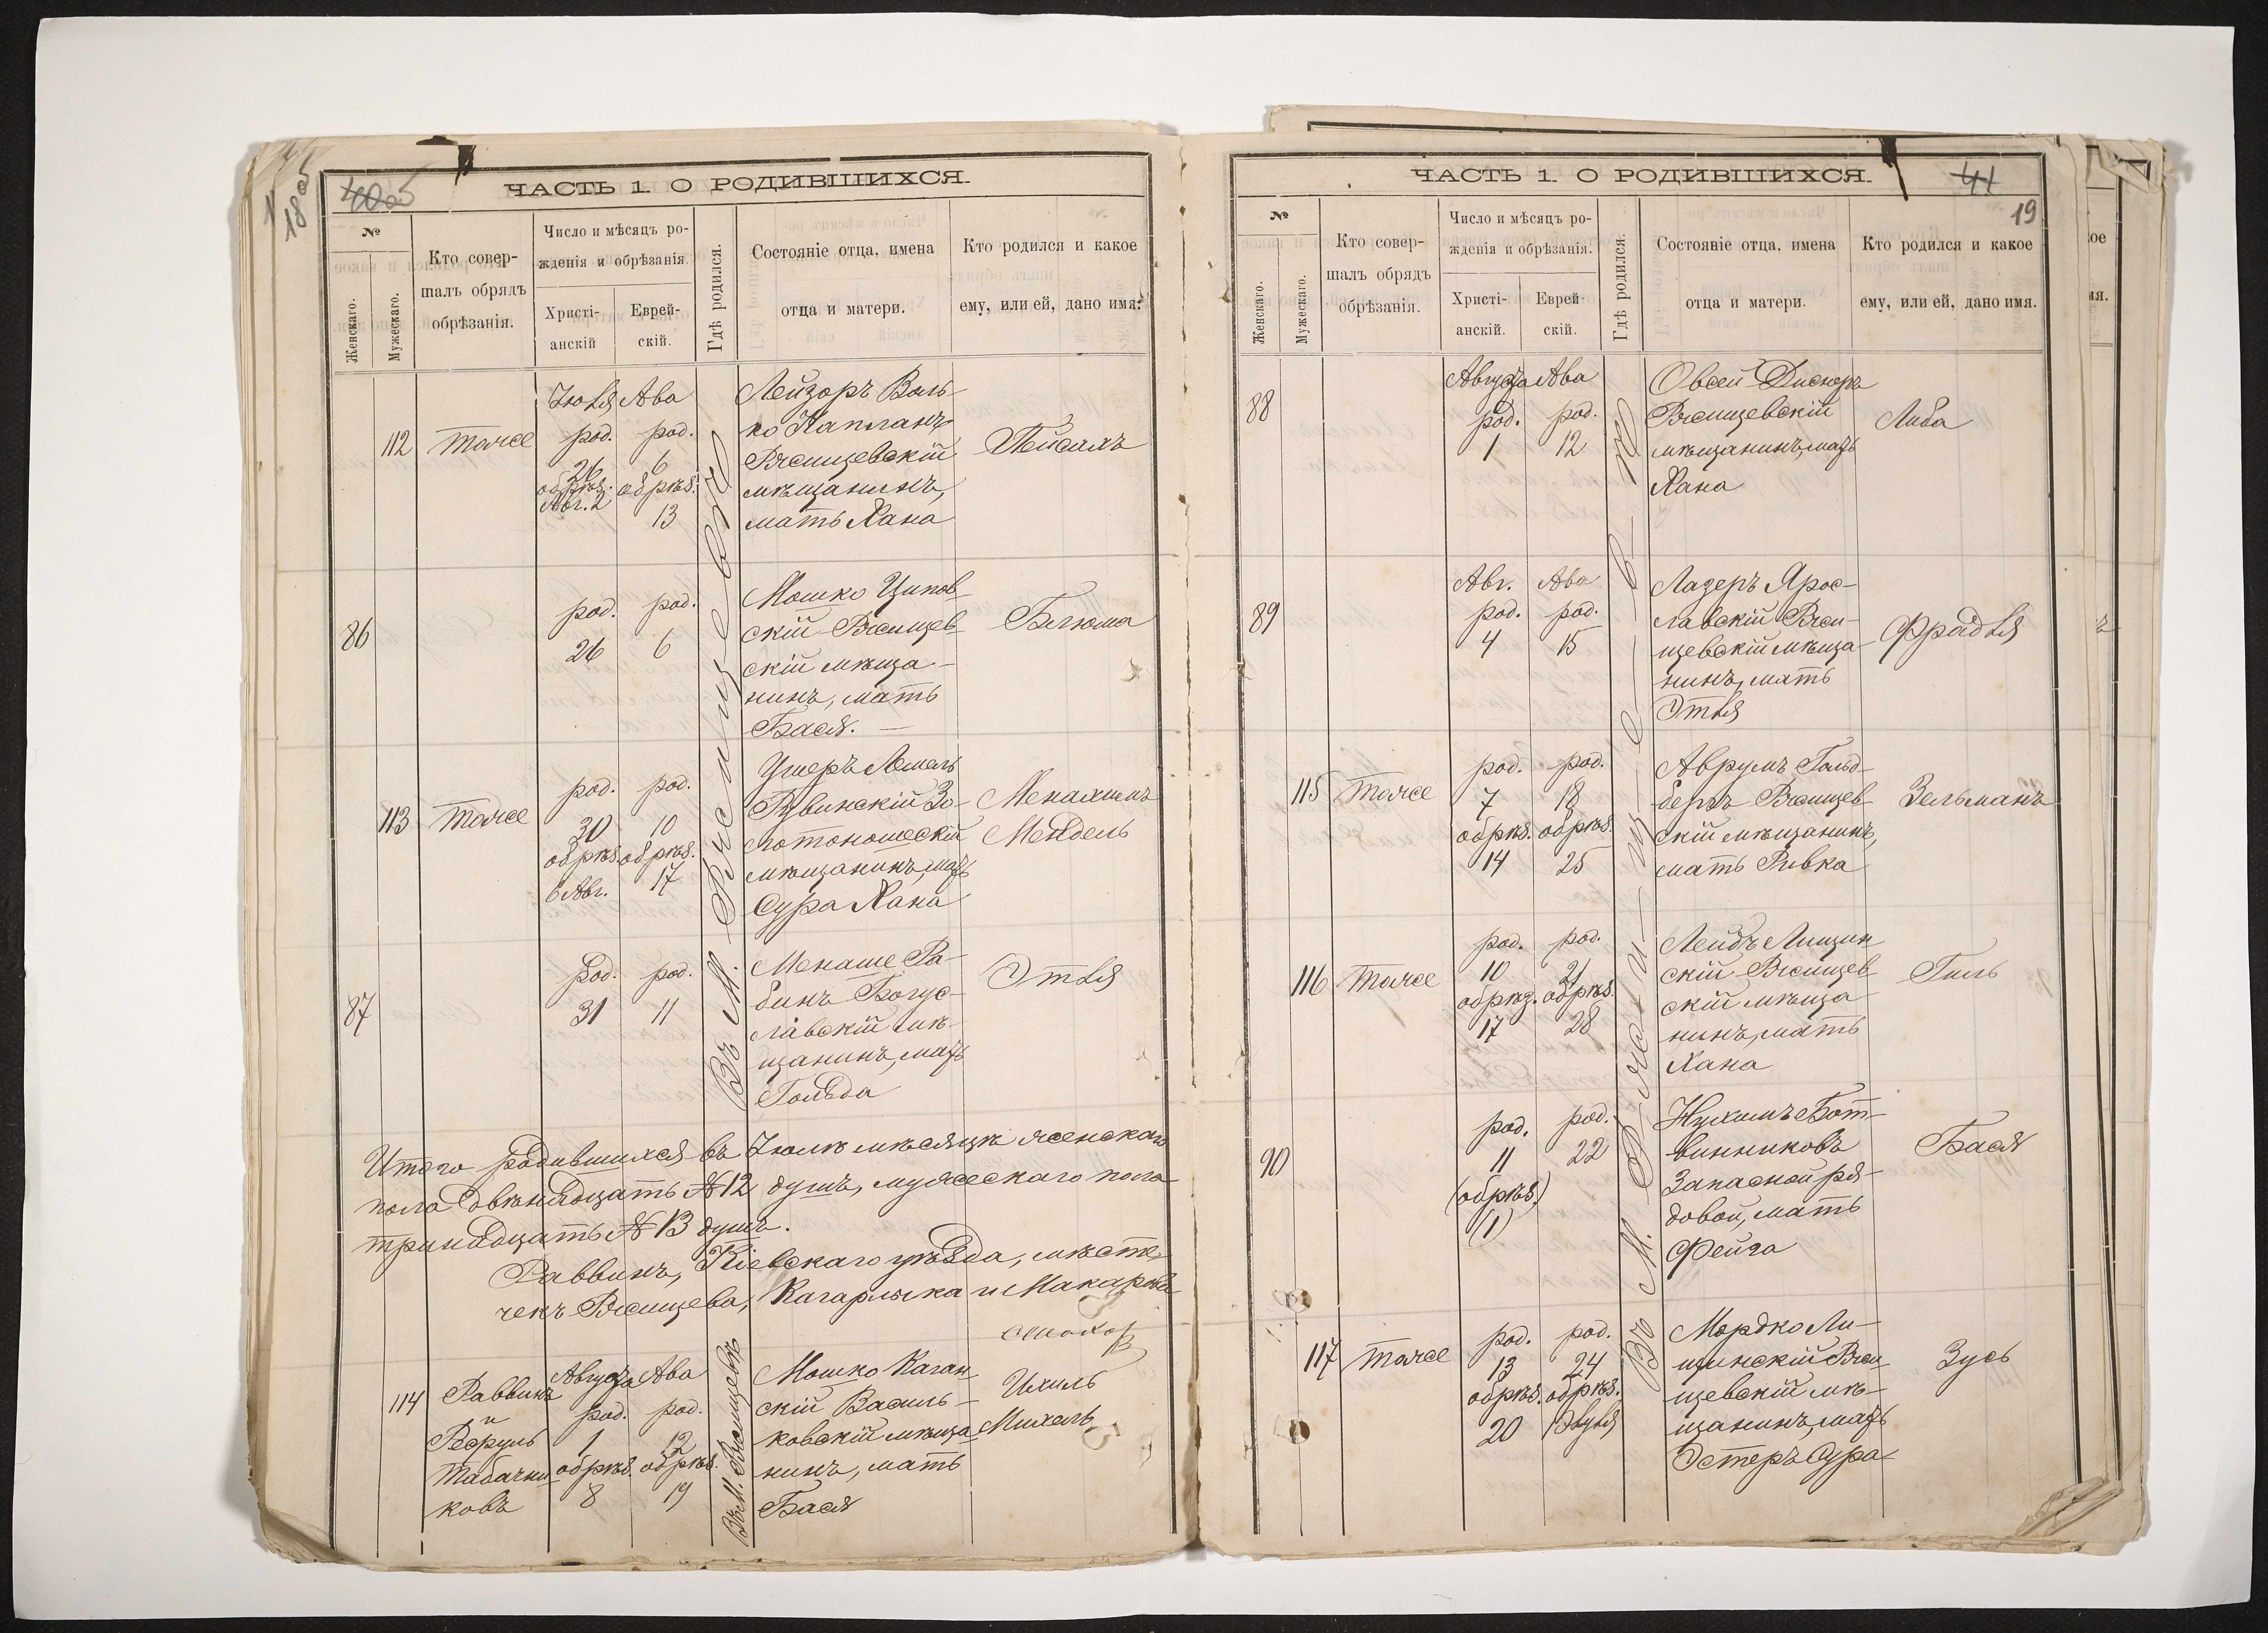 ЧАСТЬ 1. О РОДИВШИХСЯ.
№
Женскаго.
Мужескаго.
Кто совер-
шалъ обрядъ
обрѣзанія.
Число и мѣсяцъ ро-
жденія и обрѣзанія.
Христі-
анскій
Еврей-
скій.
Гдѣ родился.
Состояніе отца, имена
отца и матери.
Кто родился и какое
ему, или ей, дано имя.
112
тоже
Іюля
род.
26
обрѣз.
Авг. 2
Ава
род.
6
обрѣз.
13
Лейзоръ Воль-
ко Капланъ
Ржищевскій
мѣщанинъ,
мать Хана
Пейсахъ
86
род.
26
род.
6
Мошко Ципов-
скій Ржищев-
скій мѣща-
нинъ, мать
Бася.
Блюма
113
тоже
род.
30
обрѣз.
6 Авг.
род.
10
обрѣз.
17
Ушеръ Лемель
Рувинскій Зо-
лотоношескій
мѣщанинъ, мать
Сура Хана
Менахимъ
Мендель
87
род.
31
род.
11
Менаше Ра-
бинъ Богус-
лавскій мѣ-
щанинъ, мать
Гольда
Этля
Въ М. Ржищевѣ
Итого родившихся въ Іюлѣ мѣсяцѣ женскаго
пола двѣнадцать № 12 душъ, мужескаго пола
тринадцать № 13 душъ.
Раввинъ, Кіевскаго уѣзда, мѣсте-
чекъ Ржищева, Кагарлыка и Макарова
114
Раввинъ
и
Табачни-
ковъ
Августа
род.
1
обрѣз.
8
Ава
род.
12
обрѣз.
19
Въ М. Ржищевѣ
Мошко Каган-
скій Василь-
ковскій мѣща-
нинъ, мать
Бася
Ихиль
Михель
ЧАСТЬ 1. О РОДИВШИХСЯ.
41
19
№
Женскаго.
Мужескаго.
Кто совер-
шалъ обрядъ
обрѣзанія.
Число и мѣсяцъ ро-
жденія и обрѣзанія.
Христі-
анскій.
Еврей-
скій.
Гдѣ родился.
Состояніе отца, имена
отца и матери.
Кто родился и какое
ему, или ей, дано имя.
88
Августа
род.
1
Ава
род.
12
Овсей
Ржищевскій
мѣщанинъ, мать
Хана
Либа
89
Авг.
род.
4
Ава
род.
15
Лазеръ Ярос-
лавскій Ржи-
щевскій мѣща-
нинъ, мать
Этля
Фрадля
115
тоже
род.
7
обрѣз.
14
род.
18
обрѣз.
25
Аврумъ Гольд-
бергъ Ржищев-
скій мѣщанинъ,
мать Ривка
Зельманъ
116
тоже
род.
10
обрѣз.
17
род.
21
обрѣз.
28
Лейбъ Лищин-
скій Ржищев-
скій мѣща-
нинъ, мать
Хана
Гиль
90
род.
11
(обрѣз.)
(1)
род.
22
Нухимъ Бот-
винниковъ
Запасной ря-
довой, мать
Фейга
Бася
117
тоже
род.
13
обрѣз.
20
род.
24
обрѣз.
1 Элуля
Мордко Ли-
щинскій Ржи-
щевскій мѣ-
щанинъ, мать
Эстеръ Сура
Зусь
Въ М. Ржищевѣ